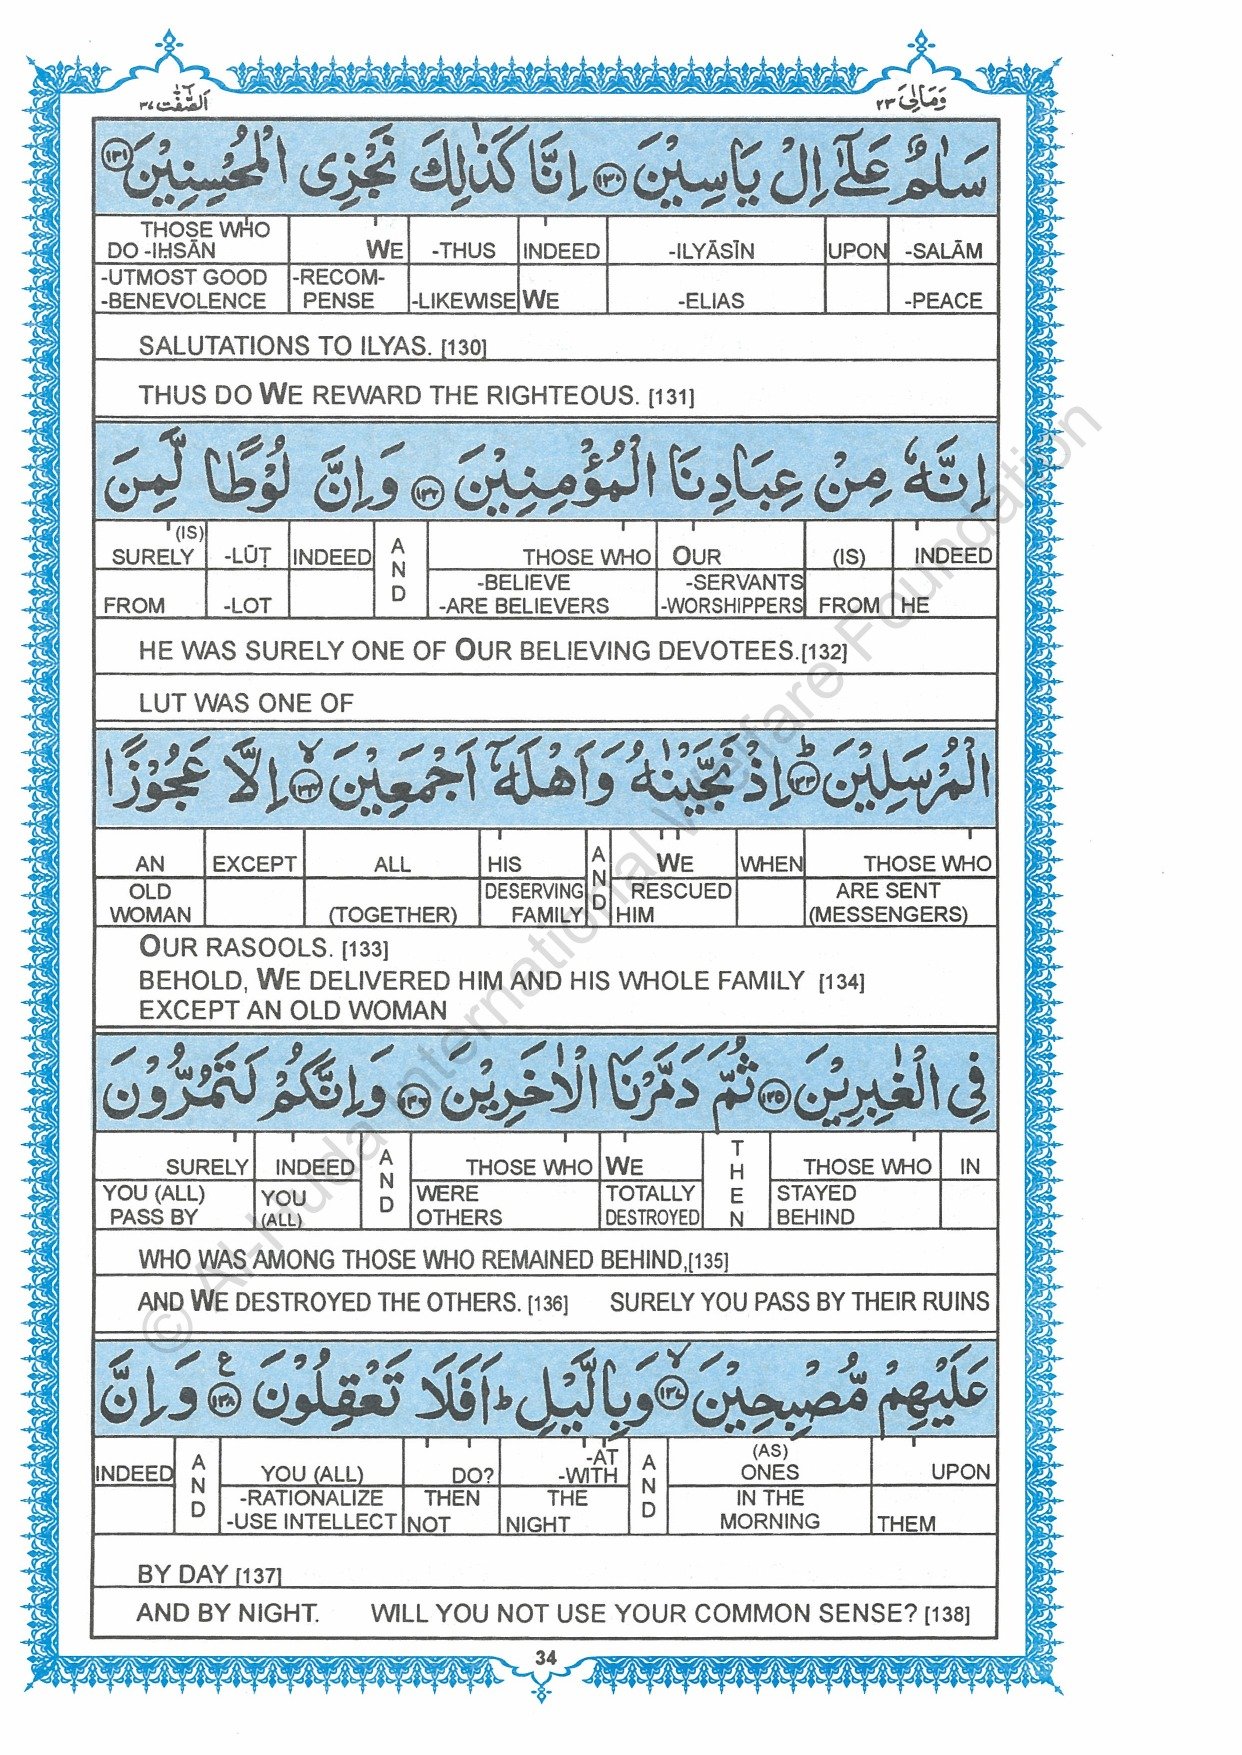 وَمَالِىَ ٢٣
اَلصّٰٓفّٰت ٣٧
سَلٰمٌ عَلٰٓى اِلْ يَاسِيْنَ ﴿١٣٠﴾ اِنَّا كَذٰلِكَ نَجْزِى الْمُحْسِنِيْنَ ﴿١٣١﴾
THOSE WHO DO -IḤSĀN | WE | -THUS | INDEED | -ILYĀSĪN | UPON | -SALĀM
-UTMOST GOOD -BENEVOLENCE | -RECOM- PENSE | -LIKEWISE | WE | -ELIAS | -PEACE
SALUTATIONS TO ILYAS. [130]
THUS DO WE REWARD THE RIGHTEOUS. [131]
اِنَّهٗ مِنْ عِبَادِنَا الْمُؤْمِنِيْنَ ﴿١٣٢﴾ وَاِنَّ لُوْطًا لَّمِنَ
(IS) SURELY | -LŪṬ | INDEED | AND | THOSE WHO | OUR | (IS) | INDEED
FROM | -LOT | -BELIEVE -ARE BELIEVERS | -SERVANTS -WORSHIPPERS | FROM | HE
HE WAS SURELY ONE OF OUR BELIEVING DEVOTEES.[132]
LUT WAS ONE OF
الْمُرْسَلِيْنَ ؕ ﴿١٣٣﴾ اِذْ نَجَّيْنٰهُ وَاَهْلَهٗٓ اَجْمَعِيْنَ ﴿١٣٤﴾ اِلَّا عَجُوْزًا
AN | EXCEPT | ALL | HIS | AND | WE | WHEN | THOSE WHO
OLD WOMAN | (TOGETHER) | DESERVING FAMILY | RESCUED HIM | ARE SENT (MESSENGERS)
OUR RASOOLS. [133]
BEHOLD, WE DELIVERED HIM AND HIS WHOLE FAMILY [134]
EXCEPT AN OLD WOMAN
فِى الْغٰبِرِيْنَ ﴿١٣٥﴾ ثُمَّ دَمَّرْنَا الْاٰخَرِيْنَ ﴿١٣٦﴾ وَاِنَّكُمْ لَتَمُرُّوْنَ
SURELY | INDEED | AND | THOSE WHO | WE | THEN | THOSE WHO | IN
YOU (ALL) PASS BY | YOU (ALL) | WERE OTHERS | TOTALLY DESTROYED | STAYED BEHIND
WHO WAS AMONG THOSE WHO REMAINED BEHIND,[135]
AND WE DESTROYED THE OTHERS. [136] SURELY YOU PASS BY THEIR RUINS
عَلَيْهِمْ مُّصْبِحِيْنَ ﴿١٣٧﴾ وَبِالَّيْلِ ؕ اَفَلَا تَعْقِلُوْنَ ﴿١٣٨﴾ ع وَاِنَّ
INDEED | AND | YOU (ALL) | DO? | -AT -WITH | AND | (AS) ONES | UPON
-RATIONALIZE -USE INTELLECT | THEN NOT | THE NIGHT | IN THE MORNING | THEM
BY DAY [137]
AND BY NIGHT. WILL YOU NOT USE YOUR COMMON SENSE? [138]
34
© Al-Huda International Welfare Foundation